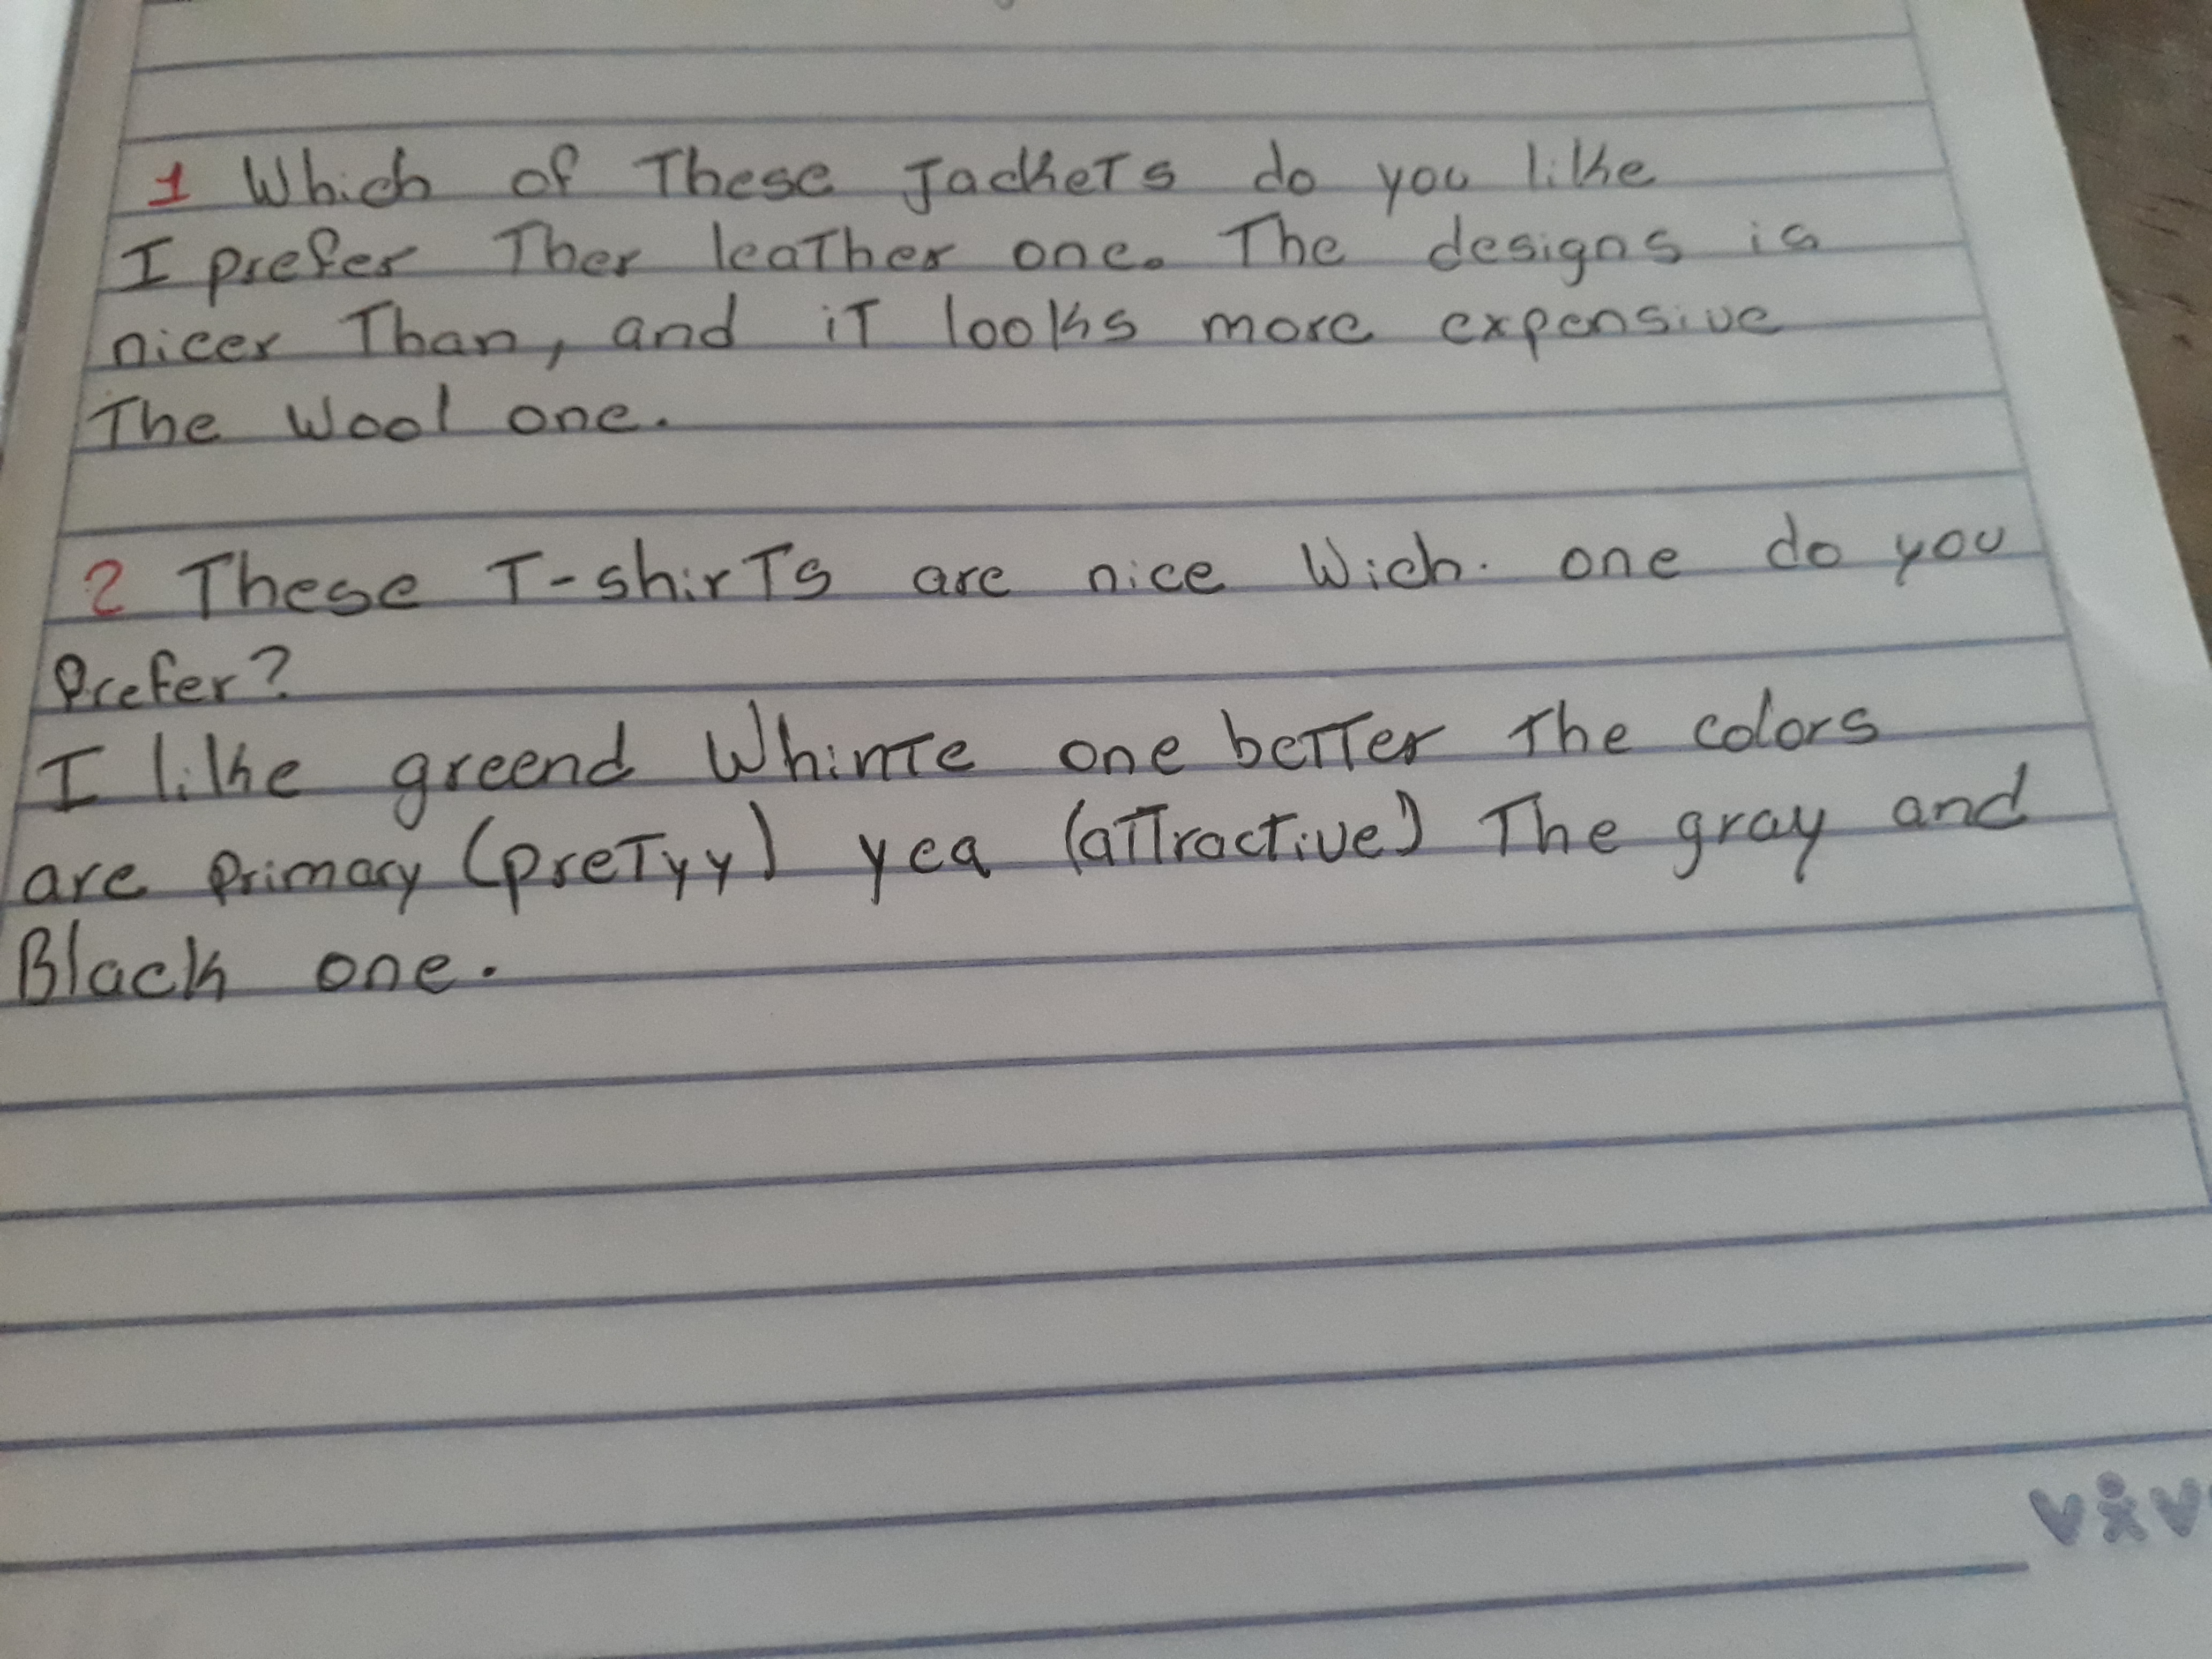 1 Which of These Jackets do you like
I prefer Ther leather one. The designs is
nicer Than, and it looks more expensive
The Wool one.
2 These T-shirts are nice Wich. one do you
Prefer?
I like greend Whinte one better The colors
are Primary (pretyy) yea (attractive) The gray and
Black one.